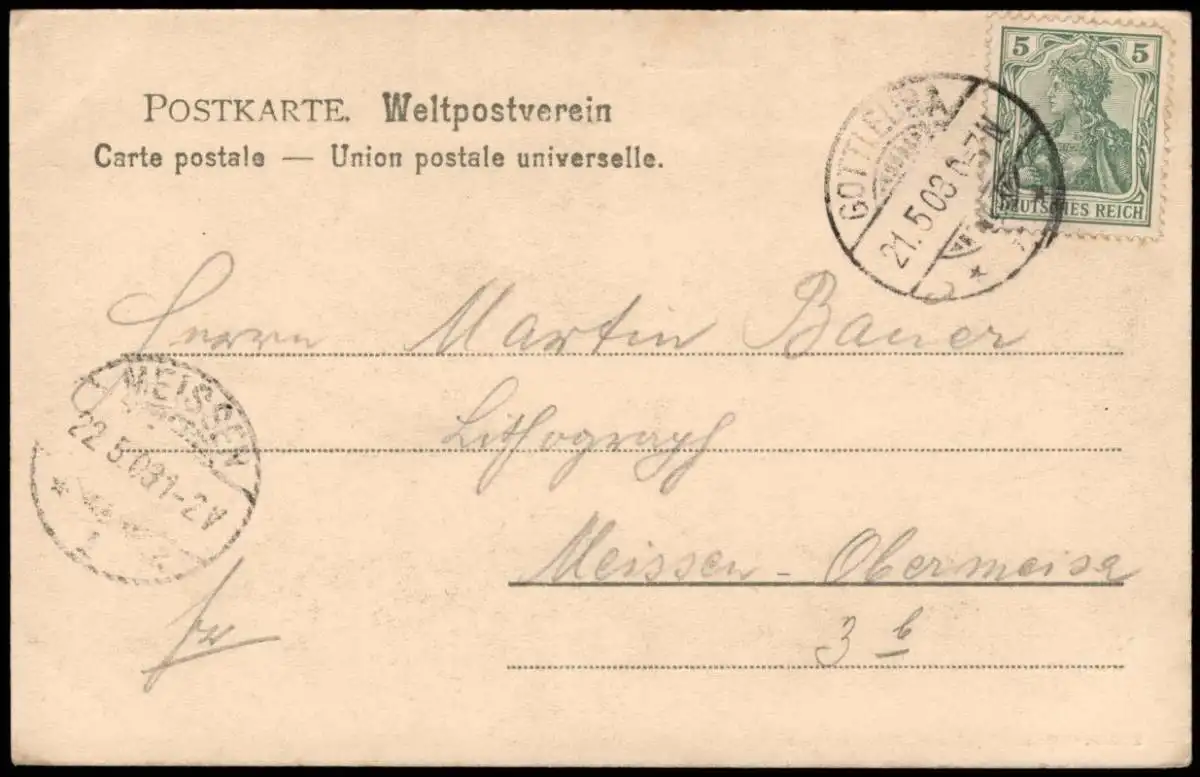 5 5
DEUTSCHES REICH
POSTKARTE. Weltpostverein
Carte postale — Union postale universelle.
GOTTLEUBA
21.5.03
Herrn Martin Bauer
Lithograph
MEISSEN
22.5.03 1-2V
Meissen - Obermeisa
3 b